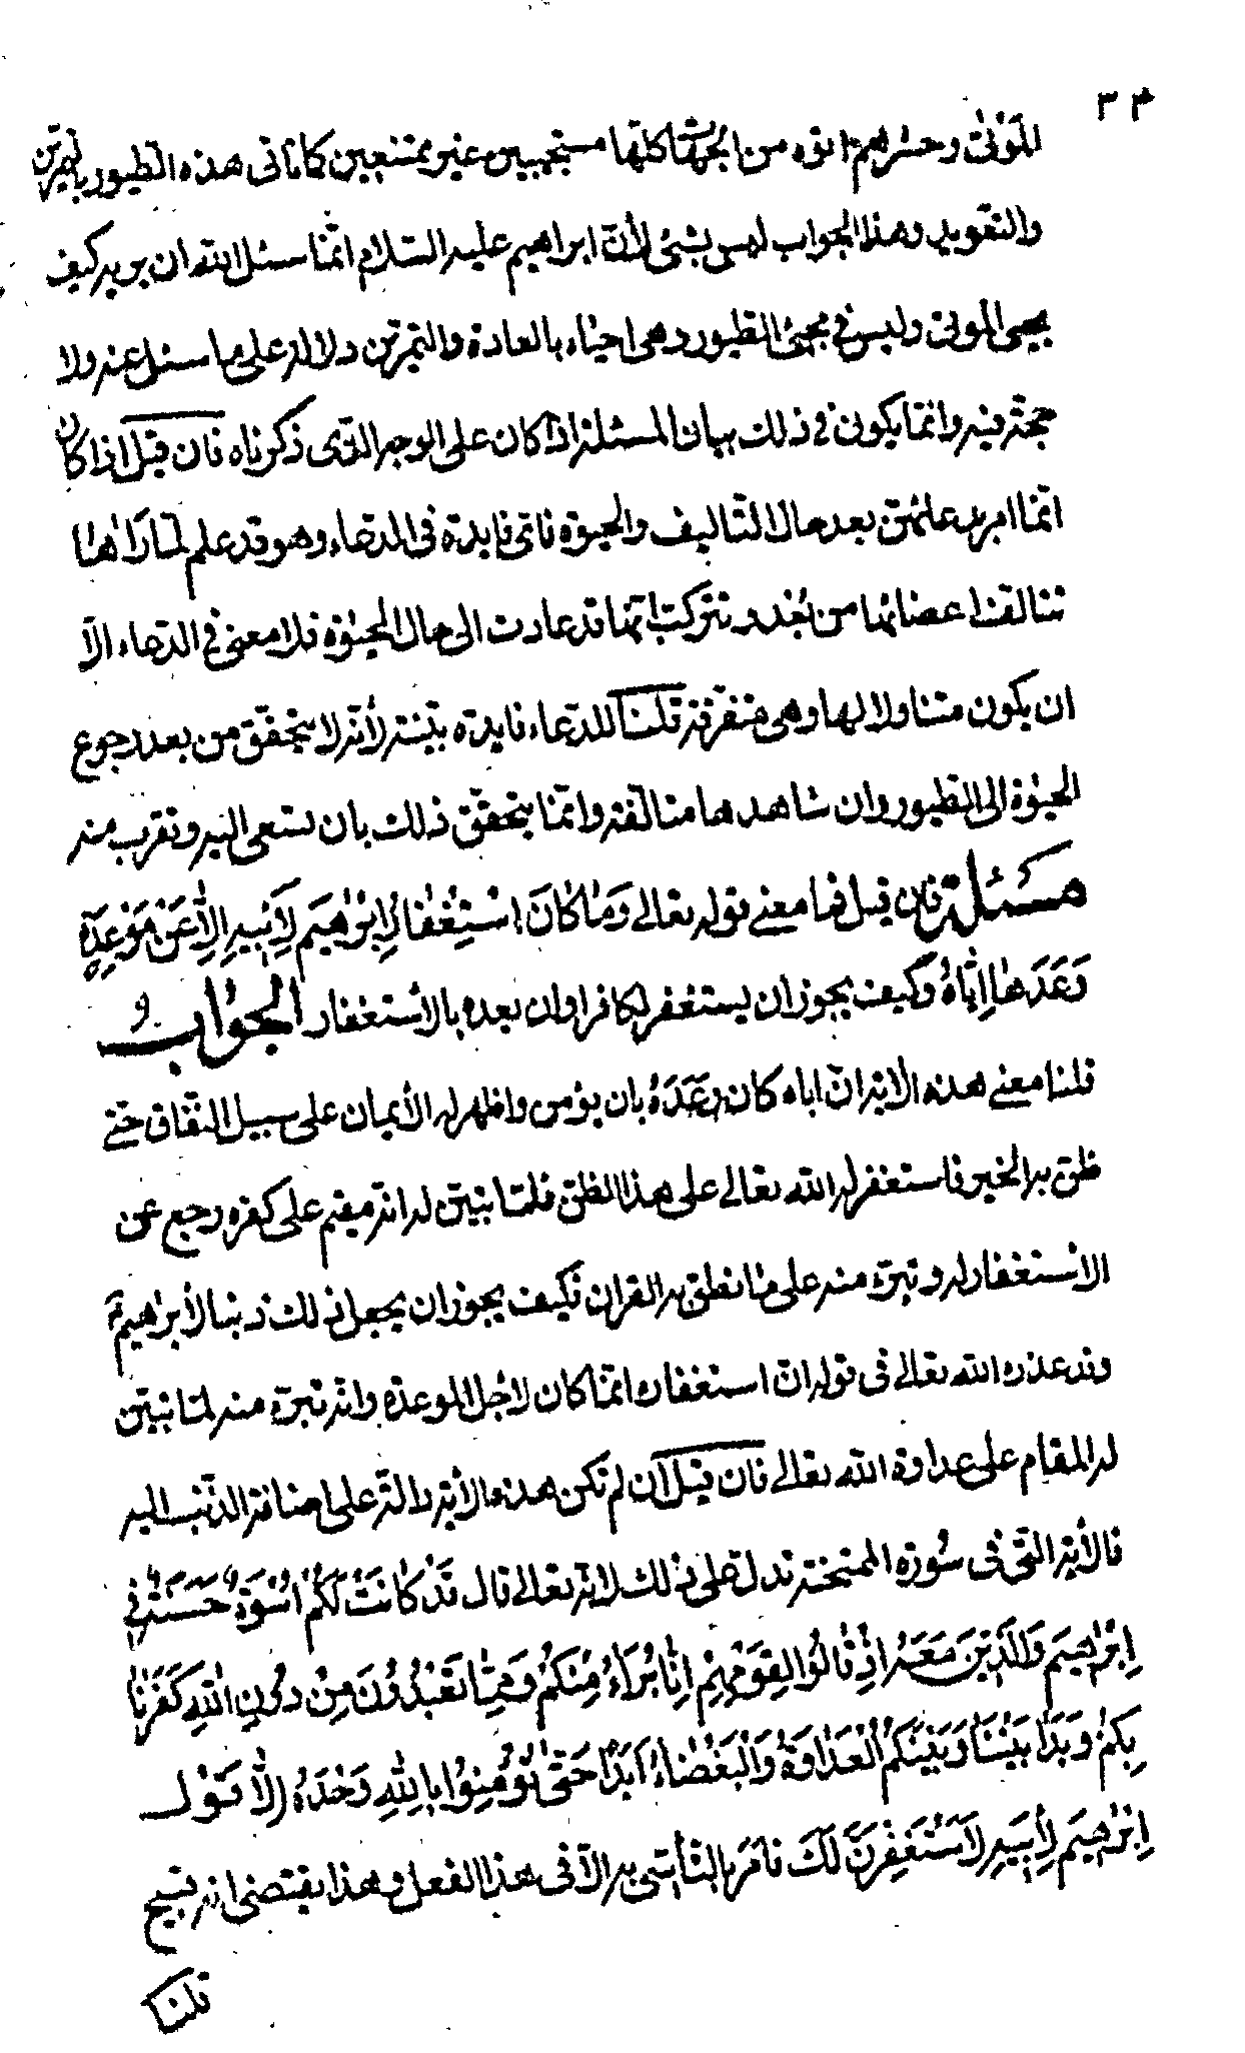 ٣٤
الموتى وحشرهم اتوه من الجهات كلها مستجيبين غير ممتنعين كما تاتى هذه الطيور بالتمرين
والتعويد وهذا الجواب ليس بشئ لأنّ ابراهيم عليه السّلام انّما سئل الله ان يريه كيف
يحيى الموتى وليس في مجئ الطيور وهى احياء بالعادة والتمرين دلالة على ما سئل عنه ولا
حجّة فيه وانّما يكون في ذلك بيان المسئلة اذا كان على الوجه الّذى ذكرناه فان قيل اذا كان
انّما امره بدعائهنّ بعد حال التّاليف والحيوة فاىّ فايدة فى الدعاء وهو قد علم لمّا راٰها
تتالف اعضائها من بُعْد وتتركّب انّها قد عادت الى حال الحيوة فلا معنى في الدعاء الّا
ان يكون متناولا لها وهى متفرّقة قلنا للدّعاء فايدة بيّنة لأنّه لا يتحقّق من بعد رجوع
الحيوة الى الطيور وان شاهدها متألفة وانّما يتحقّق ذلك بان تسعى اليه وتقرب منه
مسئلة فان قيل فما معنى قوله تعالى وَمٰا كٰانَ اسْتِغْفٰارُ اِبْرٰاهِيمَ لِأَبِيهِ اِلّٰا عَنْ مَوْعِدَةٍ
وَعَدَهٰا اِيّٰاهُ وكيف يجوز ان يستغفر لكافر او ان يعده بالاستغفار الجوٰاب و
قلنا معنى هذه الاية انّ اباه كان وَعَدَهُ بان يؤمن واظهر له الأيمان على سبيل النّفاق حتّى
ظنّ به الخير فاستغفر له الله تعالى على هذا الظنّ فلمّا تبيّن له انّه مقيم على كفره رجع عن
الاستغفار له وتبرّء منه على مٰا نطق به القرٰان فكيف يجوز ان يجعل ذلك ذنبا لأبرٰهيم ع
وقد عذره الله تعالى فى قوله انّ استغفاره انّما كان لاجل الموعدة وانّه تبرّء منه لمّا تبيّن
له المقام على عداوة الله تعالى فان قيل ان لم تكن هذه الأية دالّة على اضافة الذّنب اليه
فالأية الّتى فى سُورة الممتحنة تدلّ على ذلك لانّه تعالى قال قَدْ كٰانَتْ لَكُمْ اُسْوَةٌ حَسَنَةٌ فِي
اِبْرٰاهِيمَ وَالَّذِينَ مَعَهُ اِذْ قٰالُوا لِقَوْمِهِمْ اِنّٰا بُرَآءُ مِنْكُمْ وَمِمّٰا تَعْبُدُونَ مِنْ دُونِ اللهِ كَفَرْنٰا
بِكُمْ وَبَدٰا بَيْنَنٰا وَبَيْنَكُمُ الْعَدٰاوَةُ وَالْبَغْضٰاءُ اَبَدًا حَتّٰى تُؤْمِنُوا بِاللهِ وَحْدَهُ اِلّٰا قَوْلَ
اِبْرٰاهِيمَ لِأَبِيهِ لَأَسْتَغْفِرَنَّ لَكَ فامَرَ بالتأسّى به الّا فى هذا الفعل وهذا يقتضى انه قبيح
قلنا